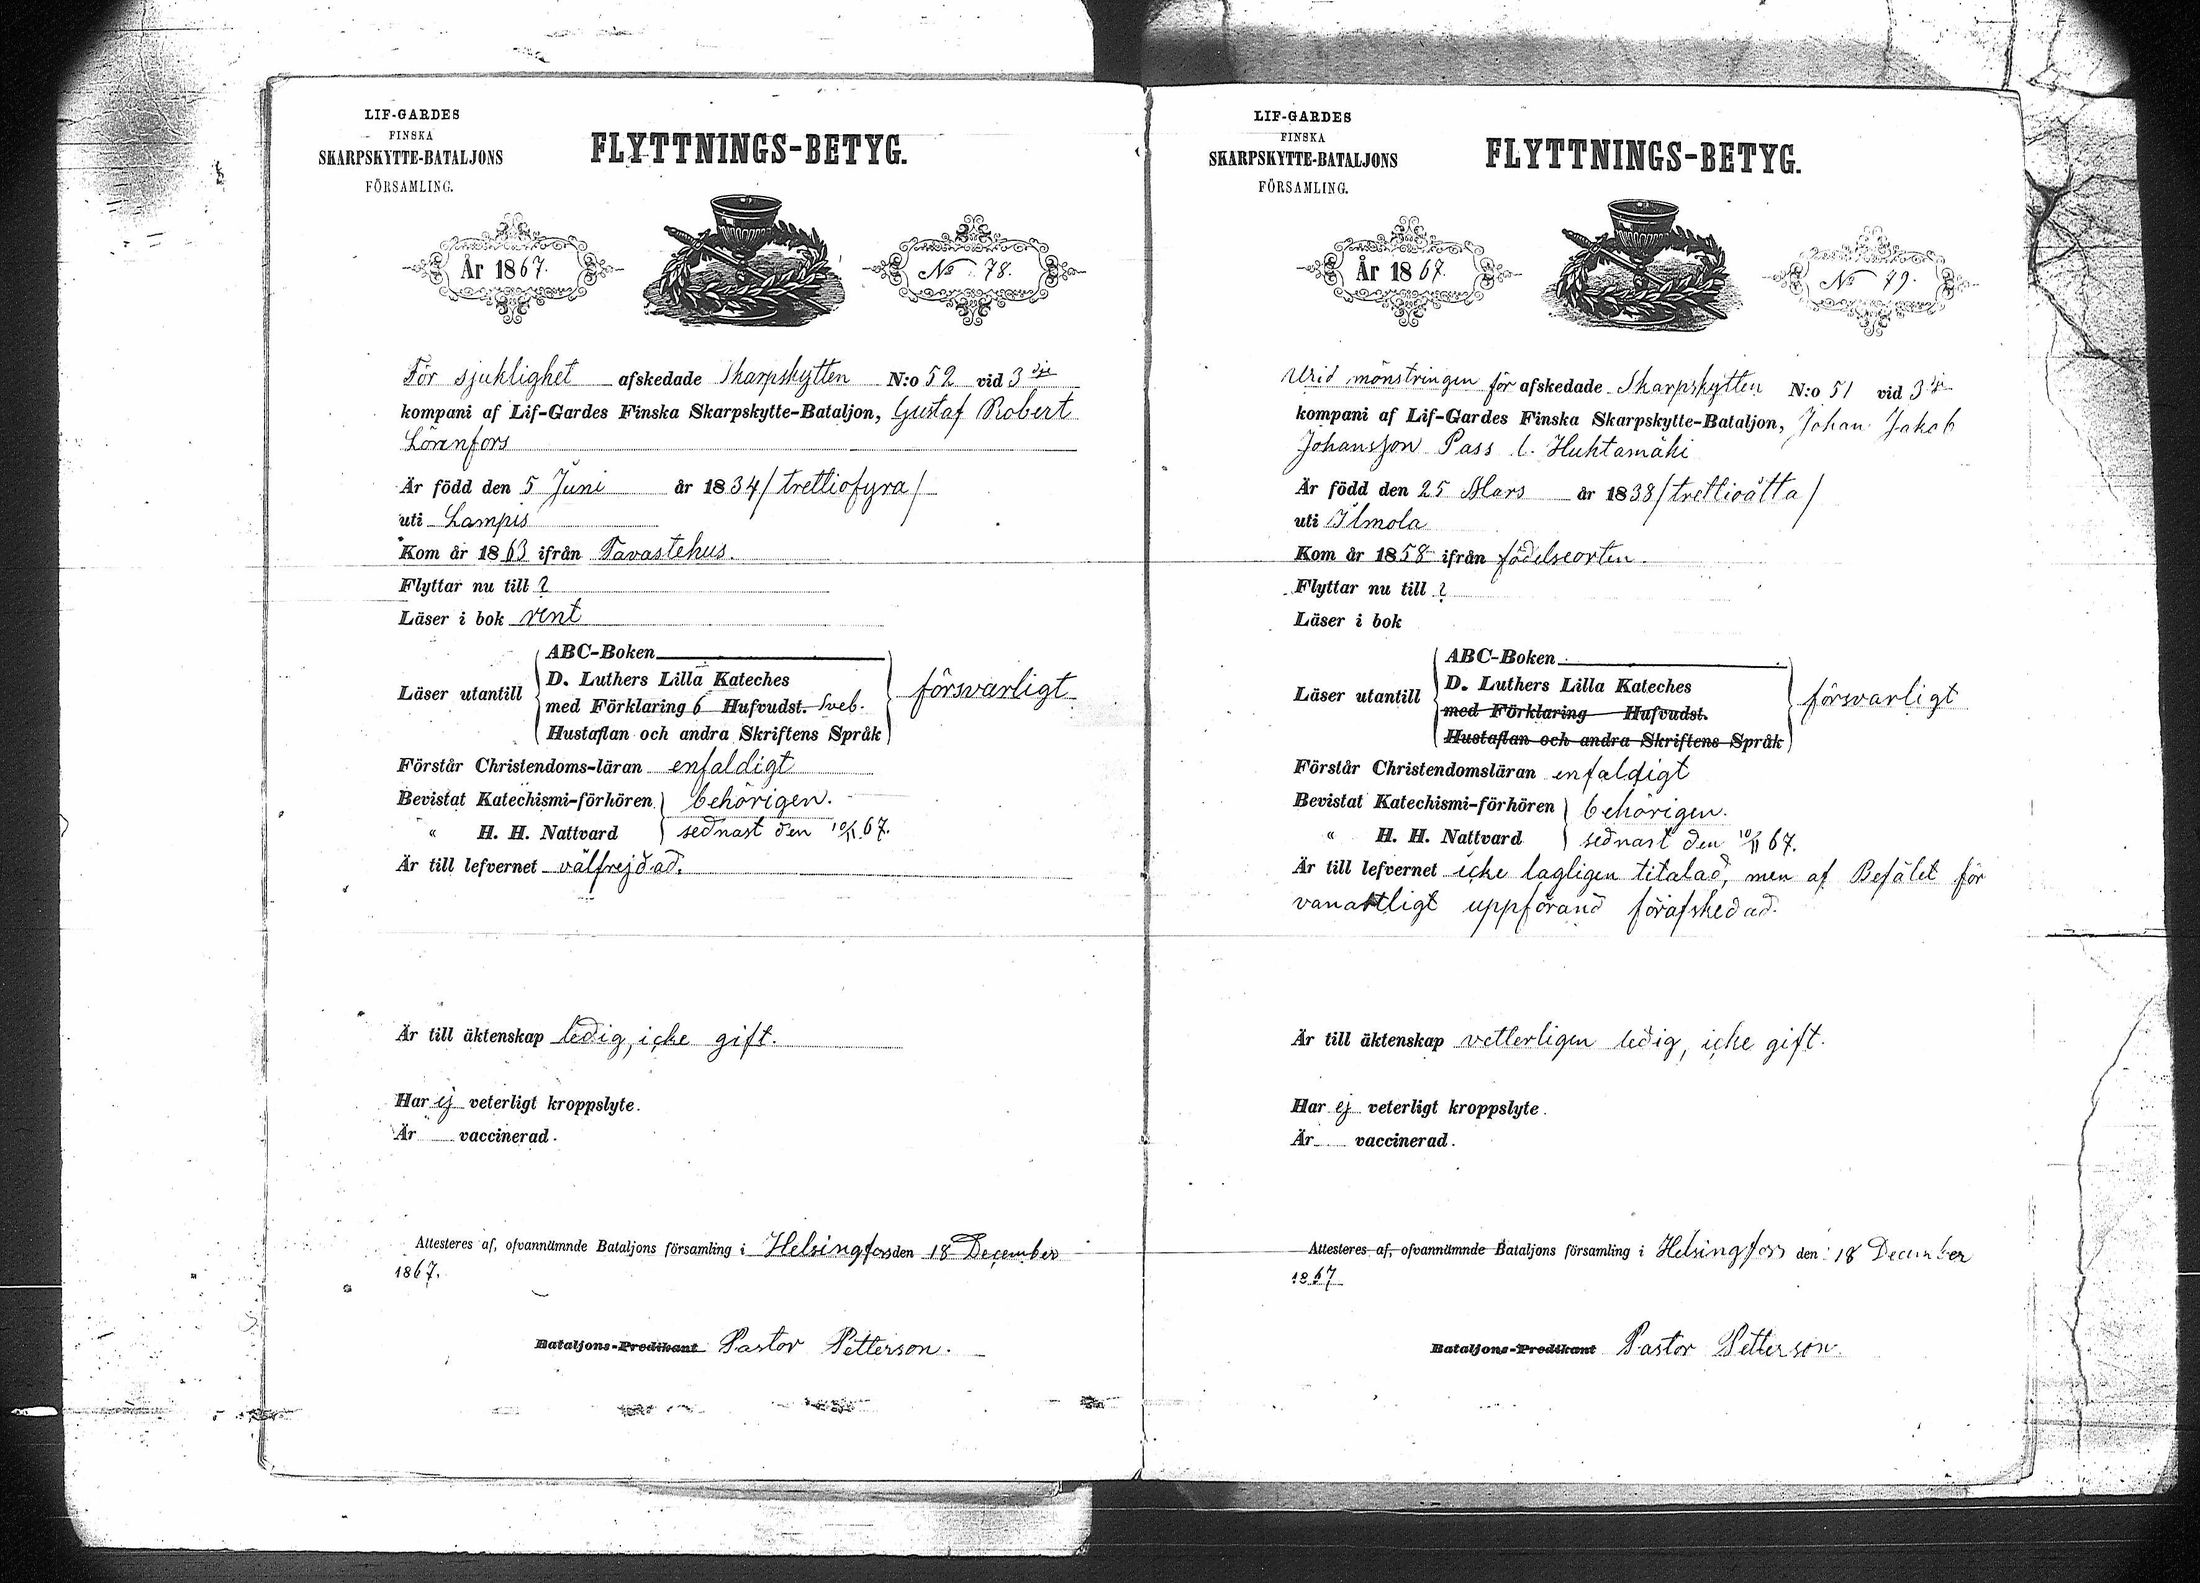 LIF-GARDES
FINSKA
SKARPSKYTTE-BATALJONS
FÖRSAMLING.
FLYTTNINGS-BETYG.
År 1867.
No 78.
För sjuklighet afskedade Skarpskytten N:o 52 vid 3dje
kompani af Lif-Gardes Finska Skarpskytte-Bataljon, Gustaf Robert
Lönnfors
Är född den 5 Juni år 1834/trettiofyra/
uti Lampis
Kom år 1863 ifrån Tavastehus.
Flyttar nu till ?
Läser i bok rent
Läser utantill
ABC-Boken
D. Luthers Lilla Kateches
med Förklaring 6 Hufvudst. Sveb.
Hustaflan och andra Skriftens Språk
försvarligt
Förstår Christendoms-läran enfaldigt
Bevistat Katechismi-förhören behörigen.
“ H. H. Nattvard sednast den 10/11 67.
Är till lefvernet välfrejdad.
Är till äktenskap ledig, icke gift.
Har ej veterligt kroppslyte.
Är vaccinerad.
Attesteres af, ofvannämnde Bataljons församling i Helsingfors den 18 December
1867.
Bataljons-Predikant Pastor Petterson.
LIF-GARDES
FINSKA
SKARPSKYTTE-BATALJONS
FÖRSAMLING.
FLYTTNINGS-BETYG.
År 1867.
No 79.
Vid mönstringen för afskedade Skarpskytten N:o 51 vid 3dje
kompani af Lif-Gardes Finska Skarpskytte-Bataljon, Johan Jakob
Johansson Pass l. Huhtamäki
Är född den 25 Mars år 1838/trettioåtta/
uti Ilmola
Kom år 1858 ifrån födelseorten.
Flyttar nu till ?
Läser i bok
Läser utantill
ABC-Boken
D. Luthers Lilla Kateches
med Förklaring Hufvudst.
Hustaflan och andra Skriftens Språk
försvarligt
Förstår Christendomsläran enfaldigt
Bevistat Katechismi-förhören behörigen.
“ H. H. Nattvard sednast den 10/11 67.
Är till lefvernet icke lagligen titalad, men af Befälet för
vanartligt uppförand förafskedad.
Är till äktenskap vetterligen ledig, icke gift.
Har ej veterligt kroppslyte.
Är vaccinerad.
Attesteres af, ofvannämnde Bataljons församling i Helsingfors den 18 December
1867
Bataljons-Predikant Pastor Petterson.